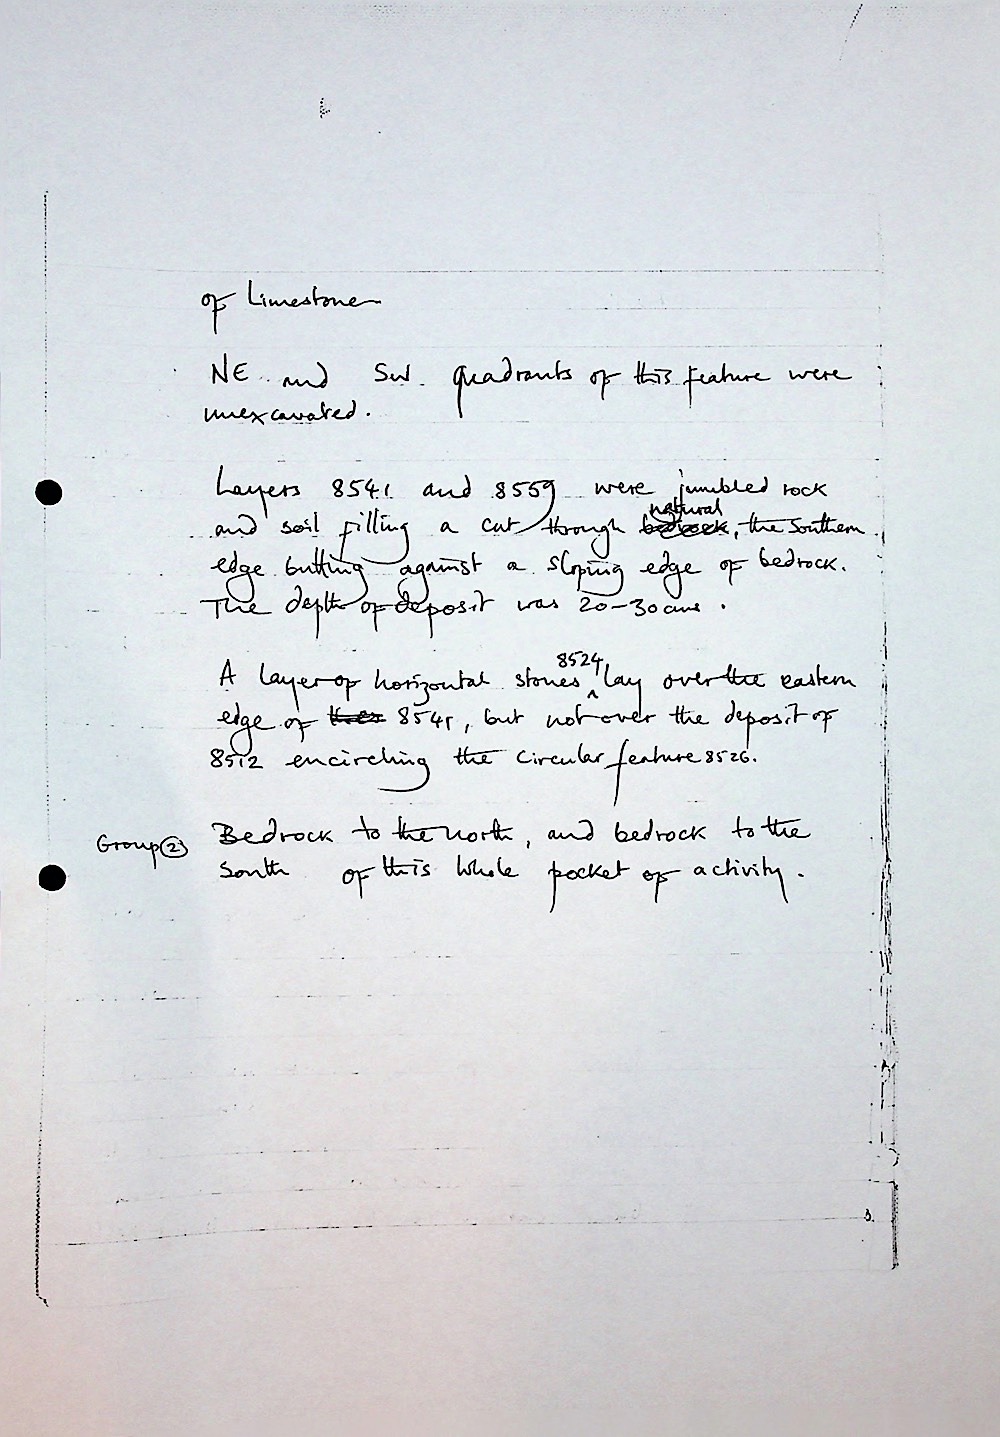 of Limestone
NE and SW quadrants of this feature were
unexcavated.
Layers 8541 and 8559 were jumbled rock
natural
and soil filling a cut through bedrock, the Southern
edge butting against a sloping edge of bedrock.
The depth of deposit was 20-30cms.
8524
A layer of horizontal stones lay over the eastern
edge of 8541, but not over the deposit of
8512 encircling the circular feature 8526.
Group 2 Bedrock to the north, and bedrock to the
south of this whole pocket of activity.